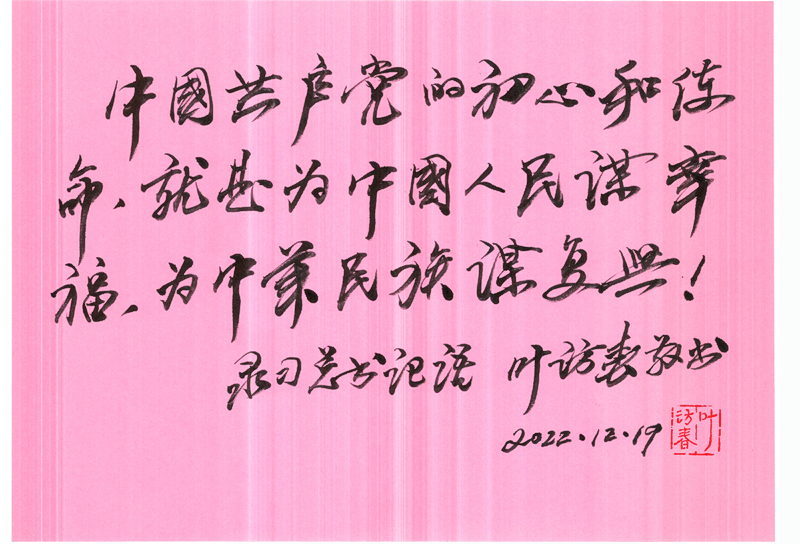 中國共产党的初心和使
命、就是为中國人民谋幸
福、为中華民族谋复興!
录习总书记语 叶访春敬书
2022.12.19
叶访春